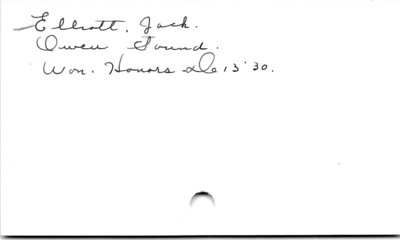 Elliott, Jack.
Owen Sound.
Won. Honors De 13'30.